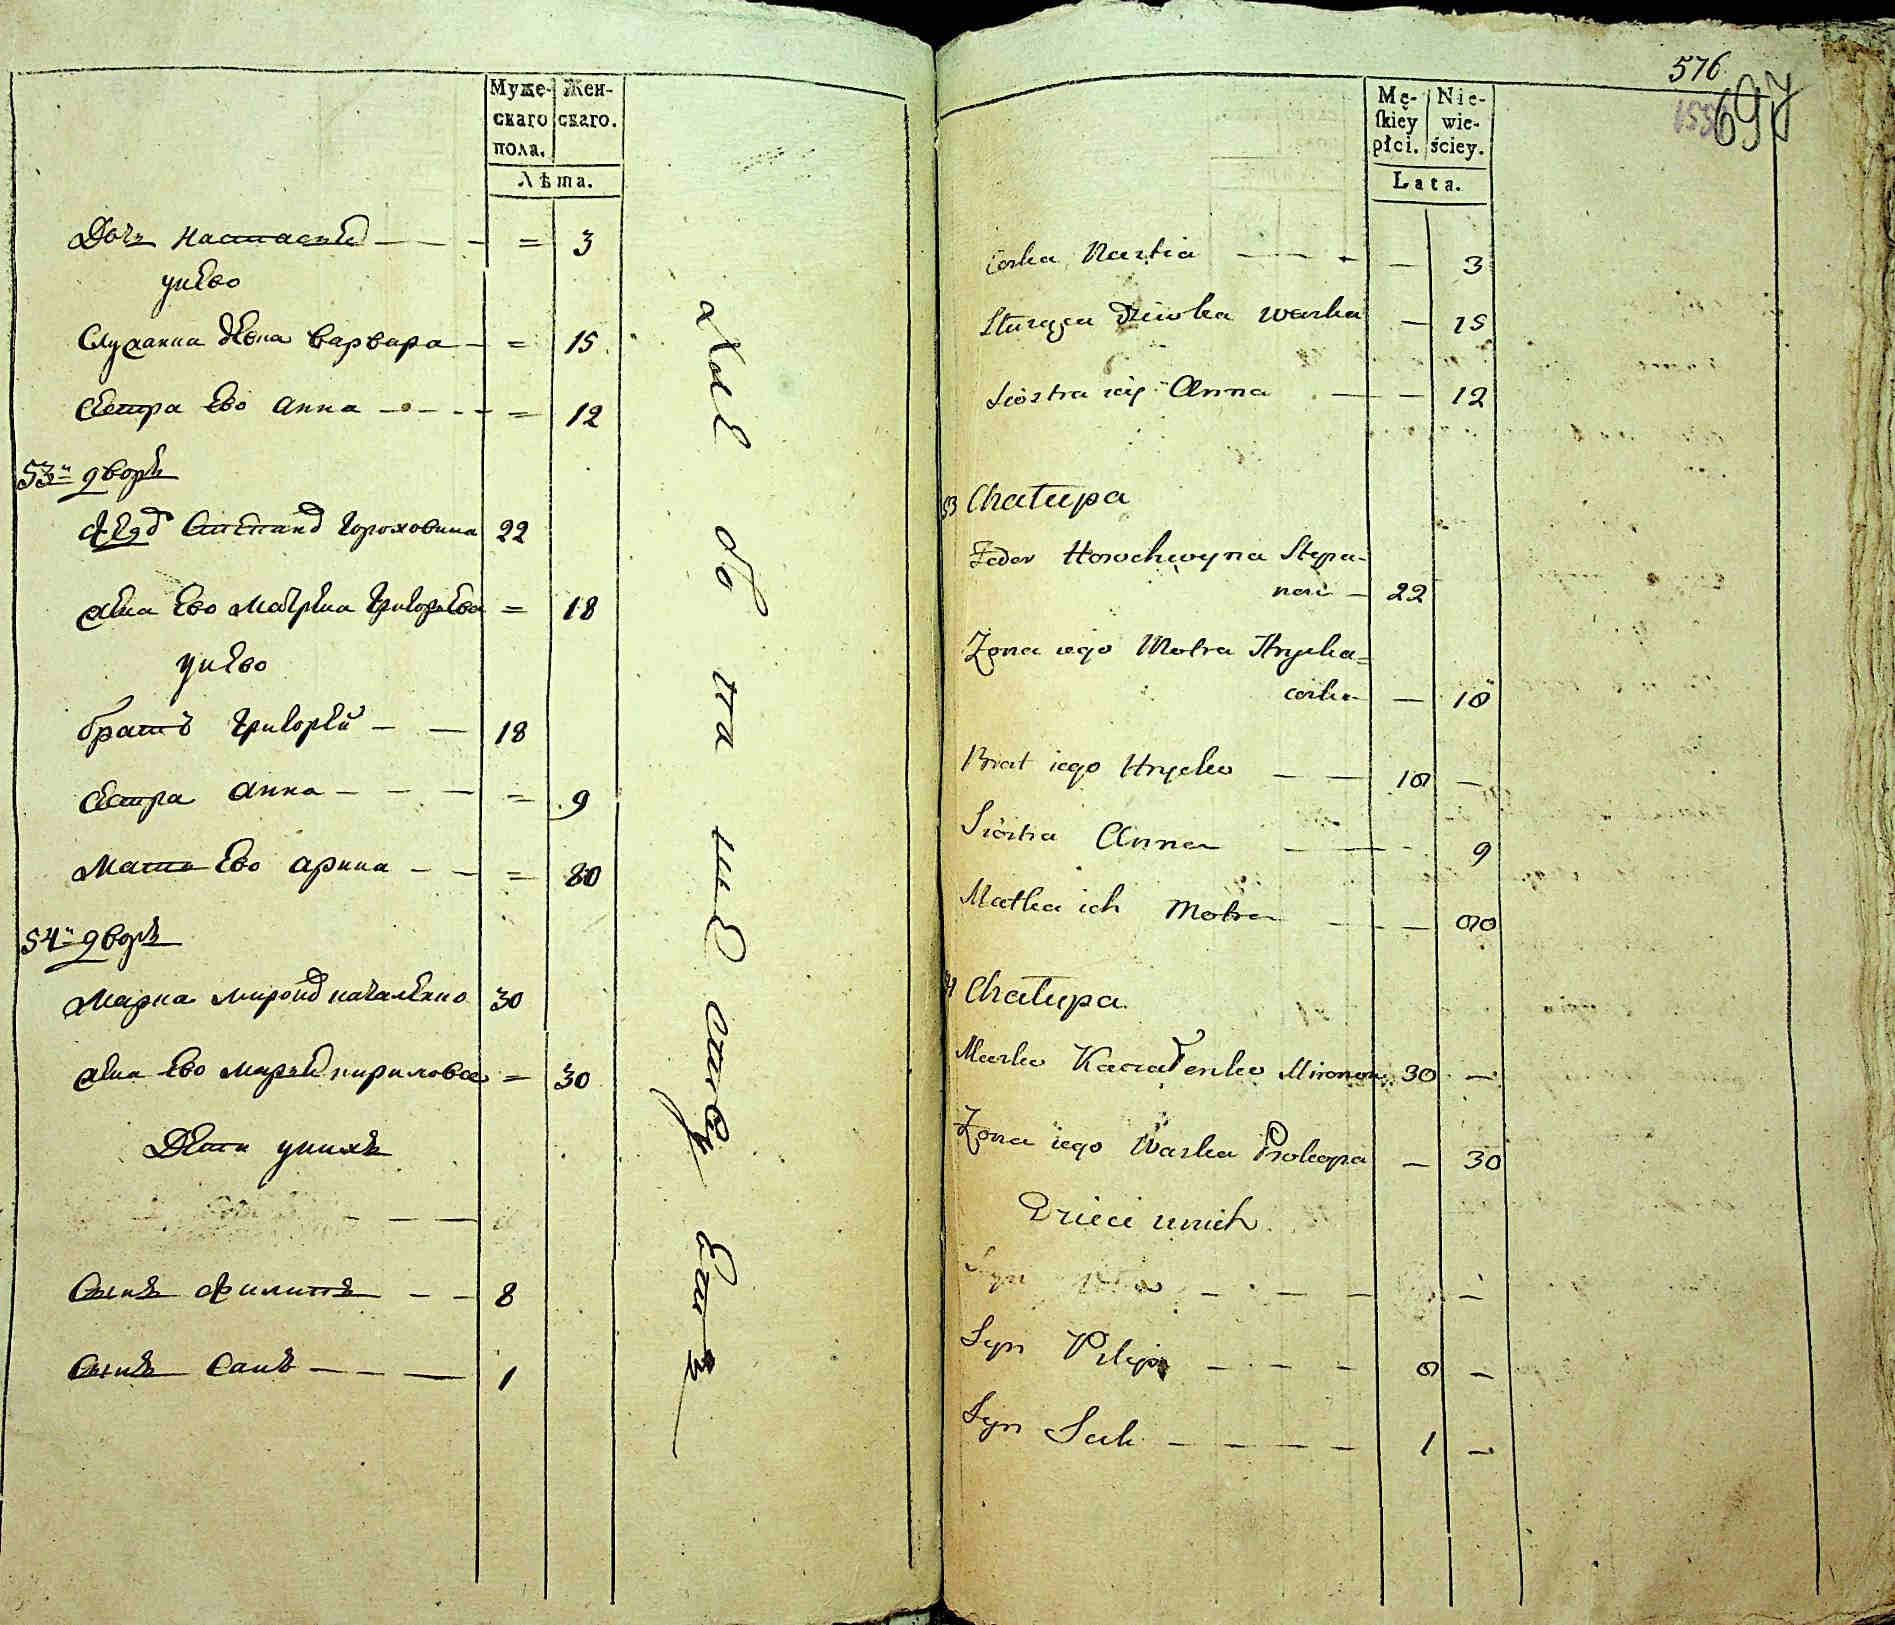 Муже-
скаго
пола.
Жен-
скаго.
Лѣта.
Дочь Настасья — — — = 3
у нево
служанка дѣвка варвара — = 15
сестра Ево анна — — — = 12
53й дворъ
Федоръ Степановъ Гороховина 22
жена Ево Матрена Григорьева = 18
у нево
братъ Григорей — — 18
сестра анна — — — = 9
мать Ево арина — — = 80
54й дворъ
Марка Мироновъ качаленко 30
жена Ево марья кирилова = 30
Дети у нихъ
сынъ филипъ — — 8
сынъ сакъ — — — 1
576
697
Mę-
skiey
płci.
Nie-
wie-
ściey.
Lata.
Corka Nastia — — — — 3
Słuząca dziewka Warka — 15
Siostra iey Anna — — 12
53 Chałupa
Fedor Horochwyna Stepa-
now — 22
Zona iego Motra Hrycka=
corka — 18
Brat iego Hrycko — — 18 —
Siostra Anna — — — 9
Matka ich Motra — — — 80
54 Chałupa
Marko Kaczałenko Mironow 30 —
Zona iego Warka Prokopa — 30
Dzieci u nich
Syn
Syn Pilip — — — 8 —
Syn Sak — — — — 1 —